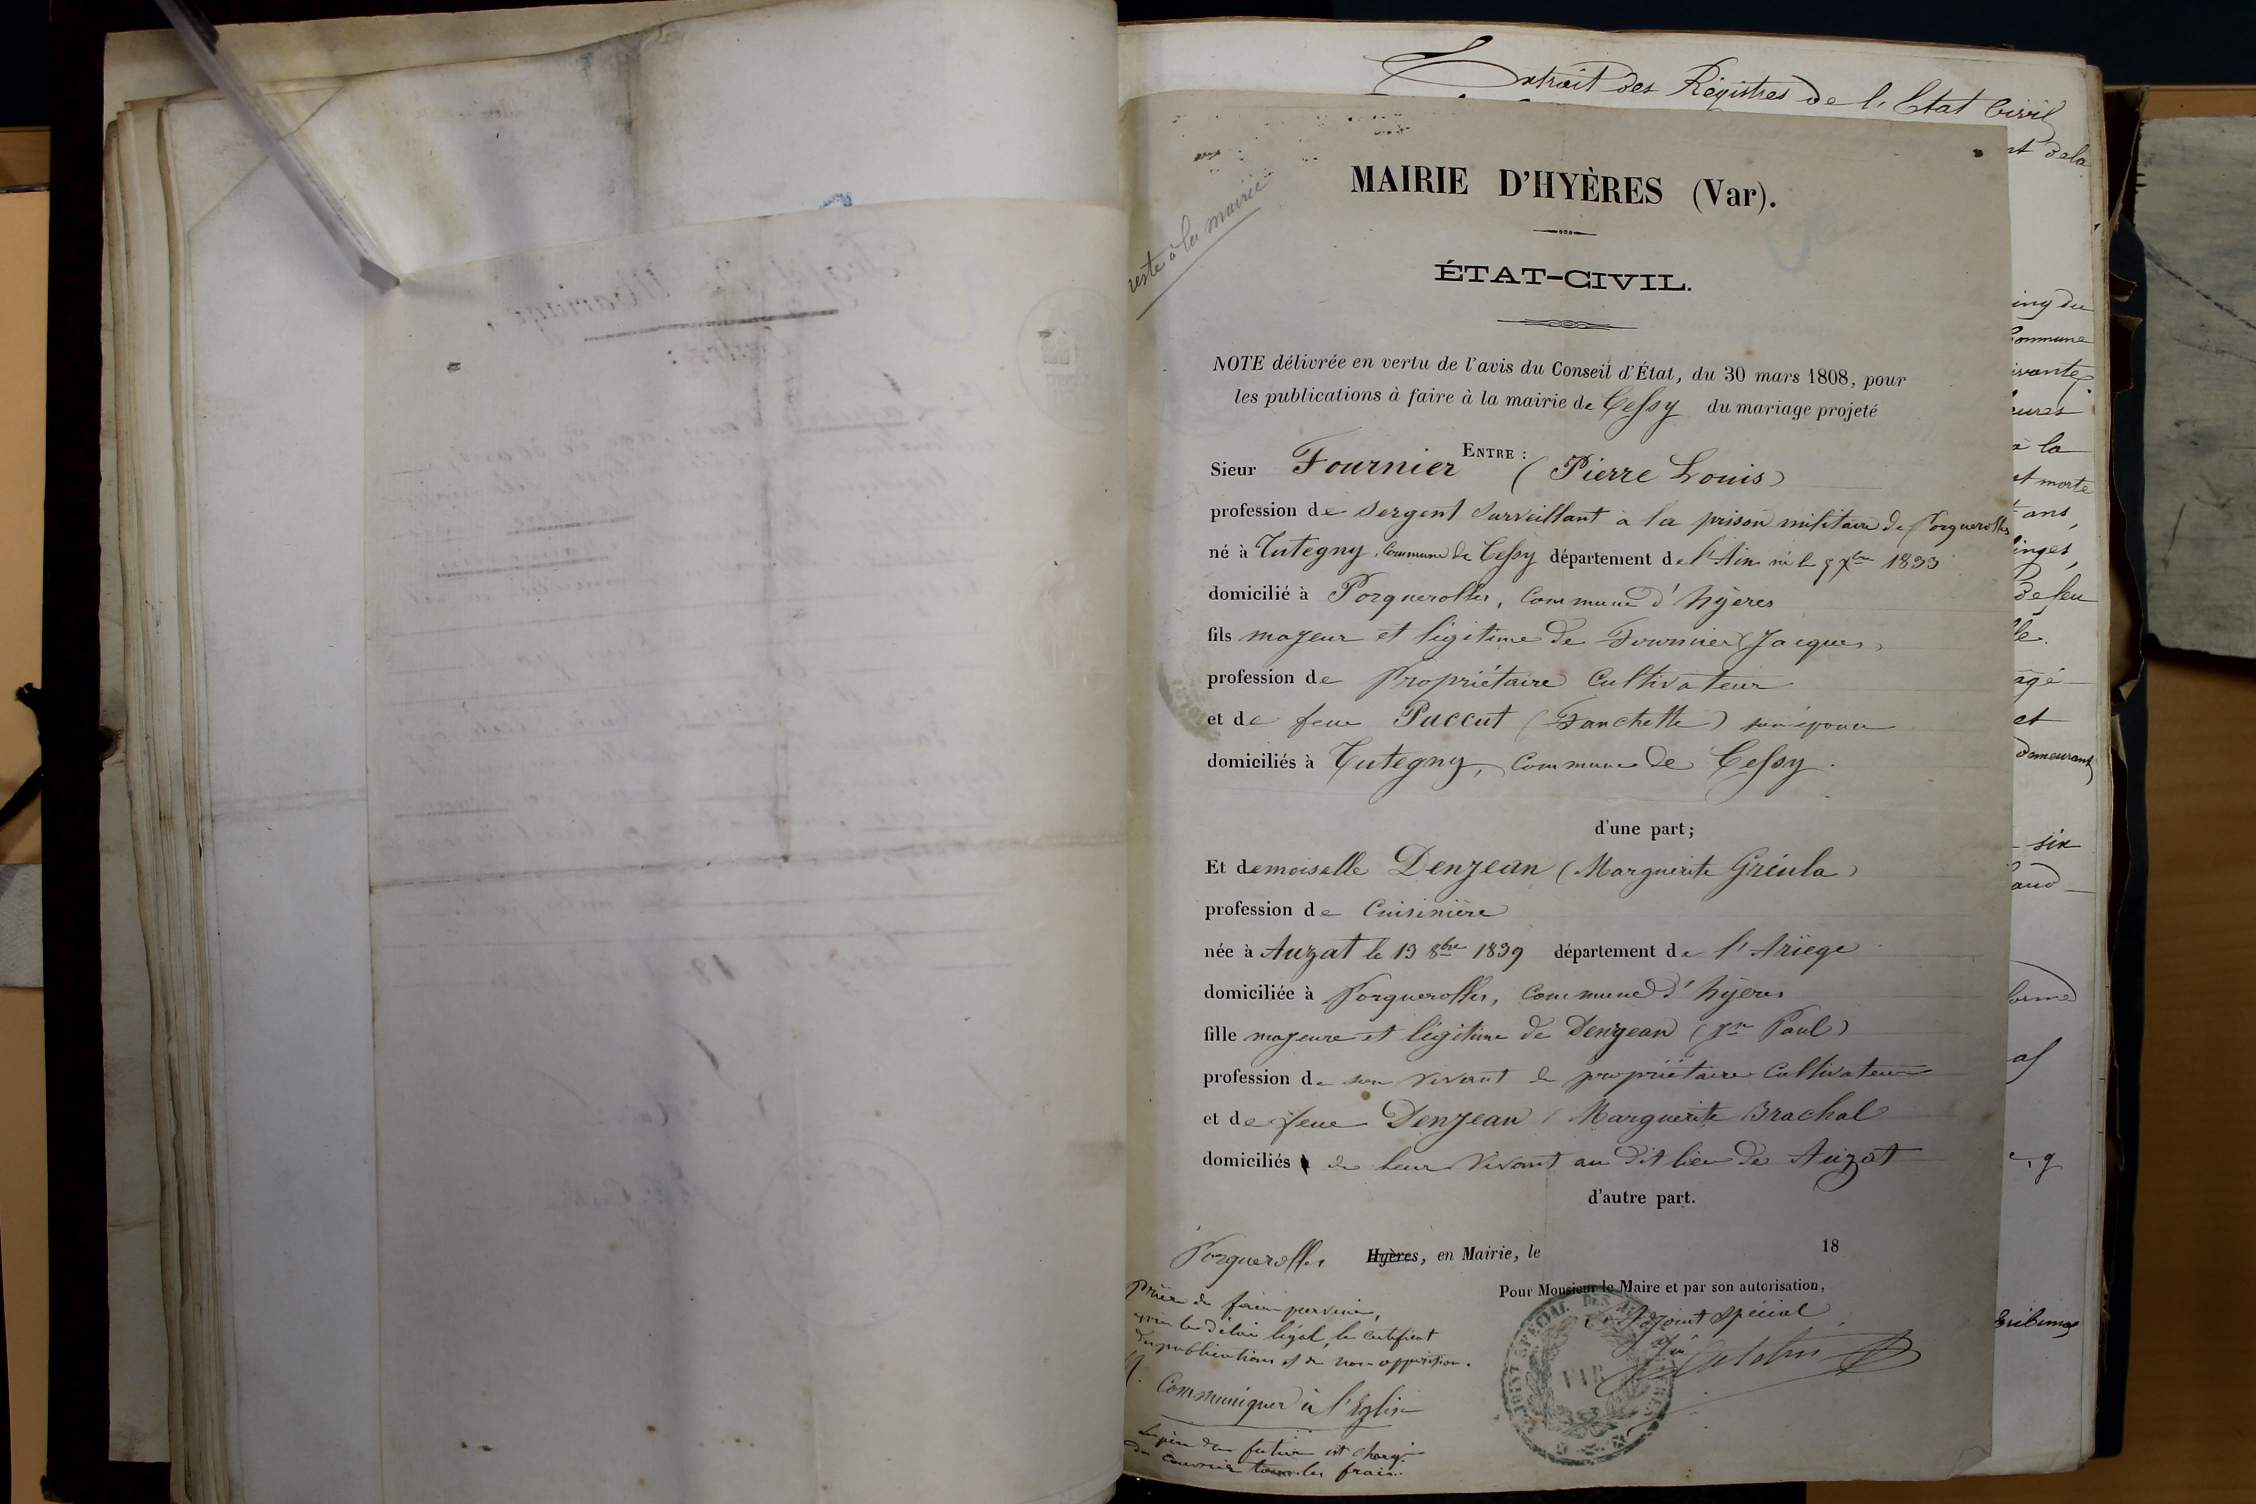 Extrait des Régistres de l'Etat Civil
nt dela
reste à la mairie
MAIRIE D'HYÈRES (Var).
ÉTAT-CIVIL.
NOTE délivrée en vertu de l'avis du Conseil d'État, du 30 mars 1808, pour
les publications à faire à la mairie de Cessy du mariage projeté
ENTRE :
Sieur Fournier (Pierre Louis)
profession de sergent surveillant à la prison militaire de Porquerolles
né à Tutegny, Commune de Cessy département de l'Ain né le 9 Xbre 1833
domicilié à Porquerolles, Commune d'hyères
fils majeur et légitime de Fournier (Jacques)
profession de Propriétaire Cultivateur
et de feue Paccut (Fanchette) son épouse
domiciliés à Tutegny, Commune de Cessy.
d'une part;
Et demoiselle Denjean (Marguerite Gréula)
profession de Cuisinière
née à Auzat le 13 8bre 1839 département de l'Ariège
domiciliée à Porquerolles, Commune d'hyères
fille majeure et légitime de Denjean (Jn Paul)
profession de son vivant de propriétaire Cultivateur
et de feue Denjean Marguerite Brachal
domiciliés de leur vivant au dit lieu de Auzat
d'autre part.
Porquerolles Hyères, en Mairie, le 18
Pour Monsieur le Maire et par son autorisation,
L'Adjoint spécial
Prière de faire parvenir,
après le délai légal, le certificat
de publications et de non opposition.
Communiquer à l'Eglise
Le père du futur est chargé
de couvrir tous les frais.
VAR
ing du
Commune
ivante
heures
à la
nt morte
ans,
inges,
de feu
agé
et
demeurant
six